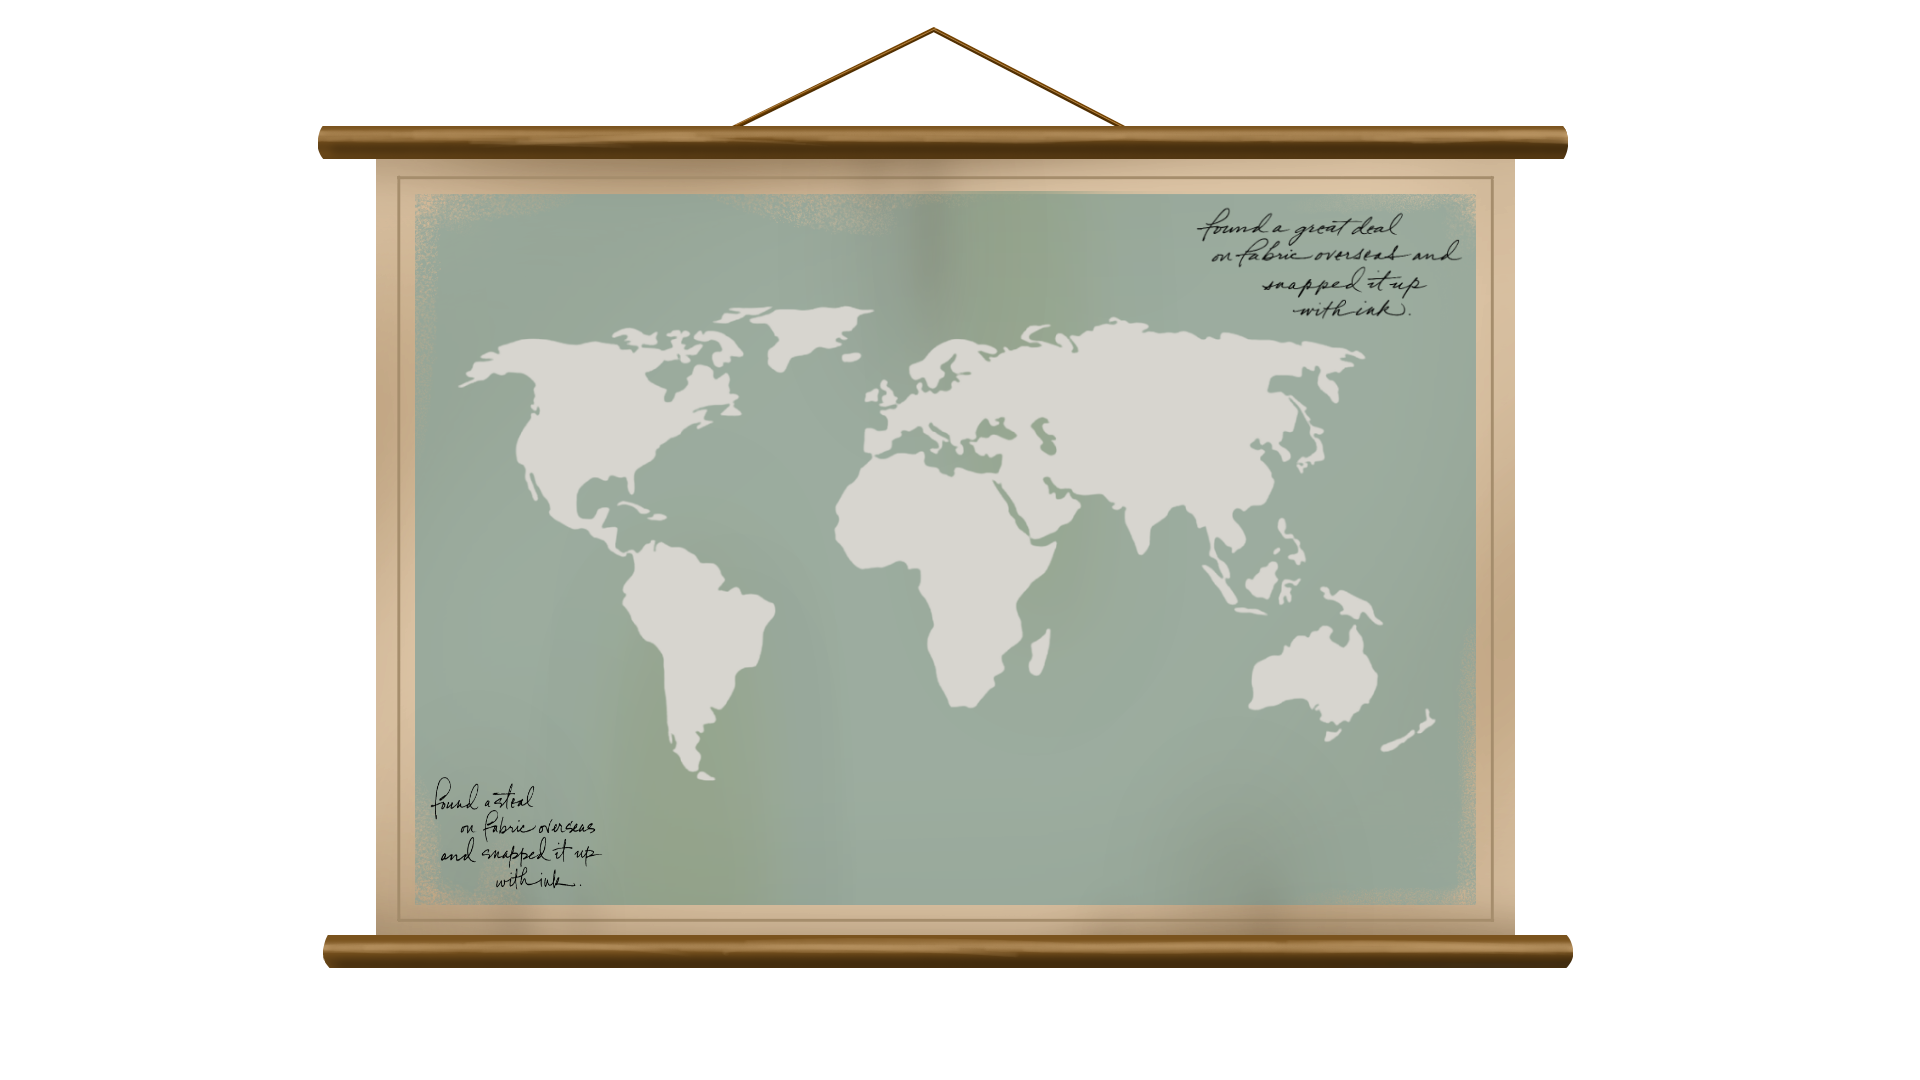 found a great deal
on fabric overseas and
snapped it up
with ink.
found a steal
on fabric overseas
and snapped it up
with ink.